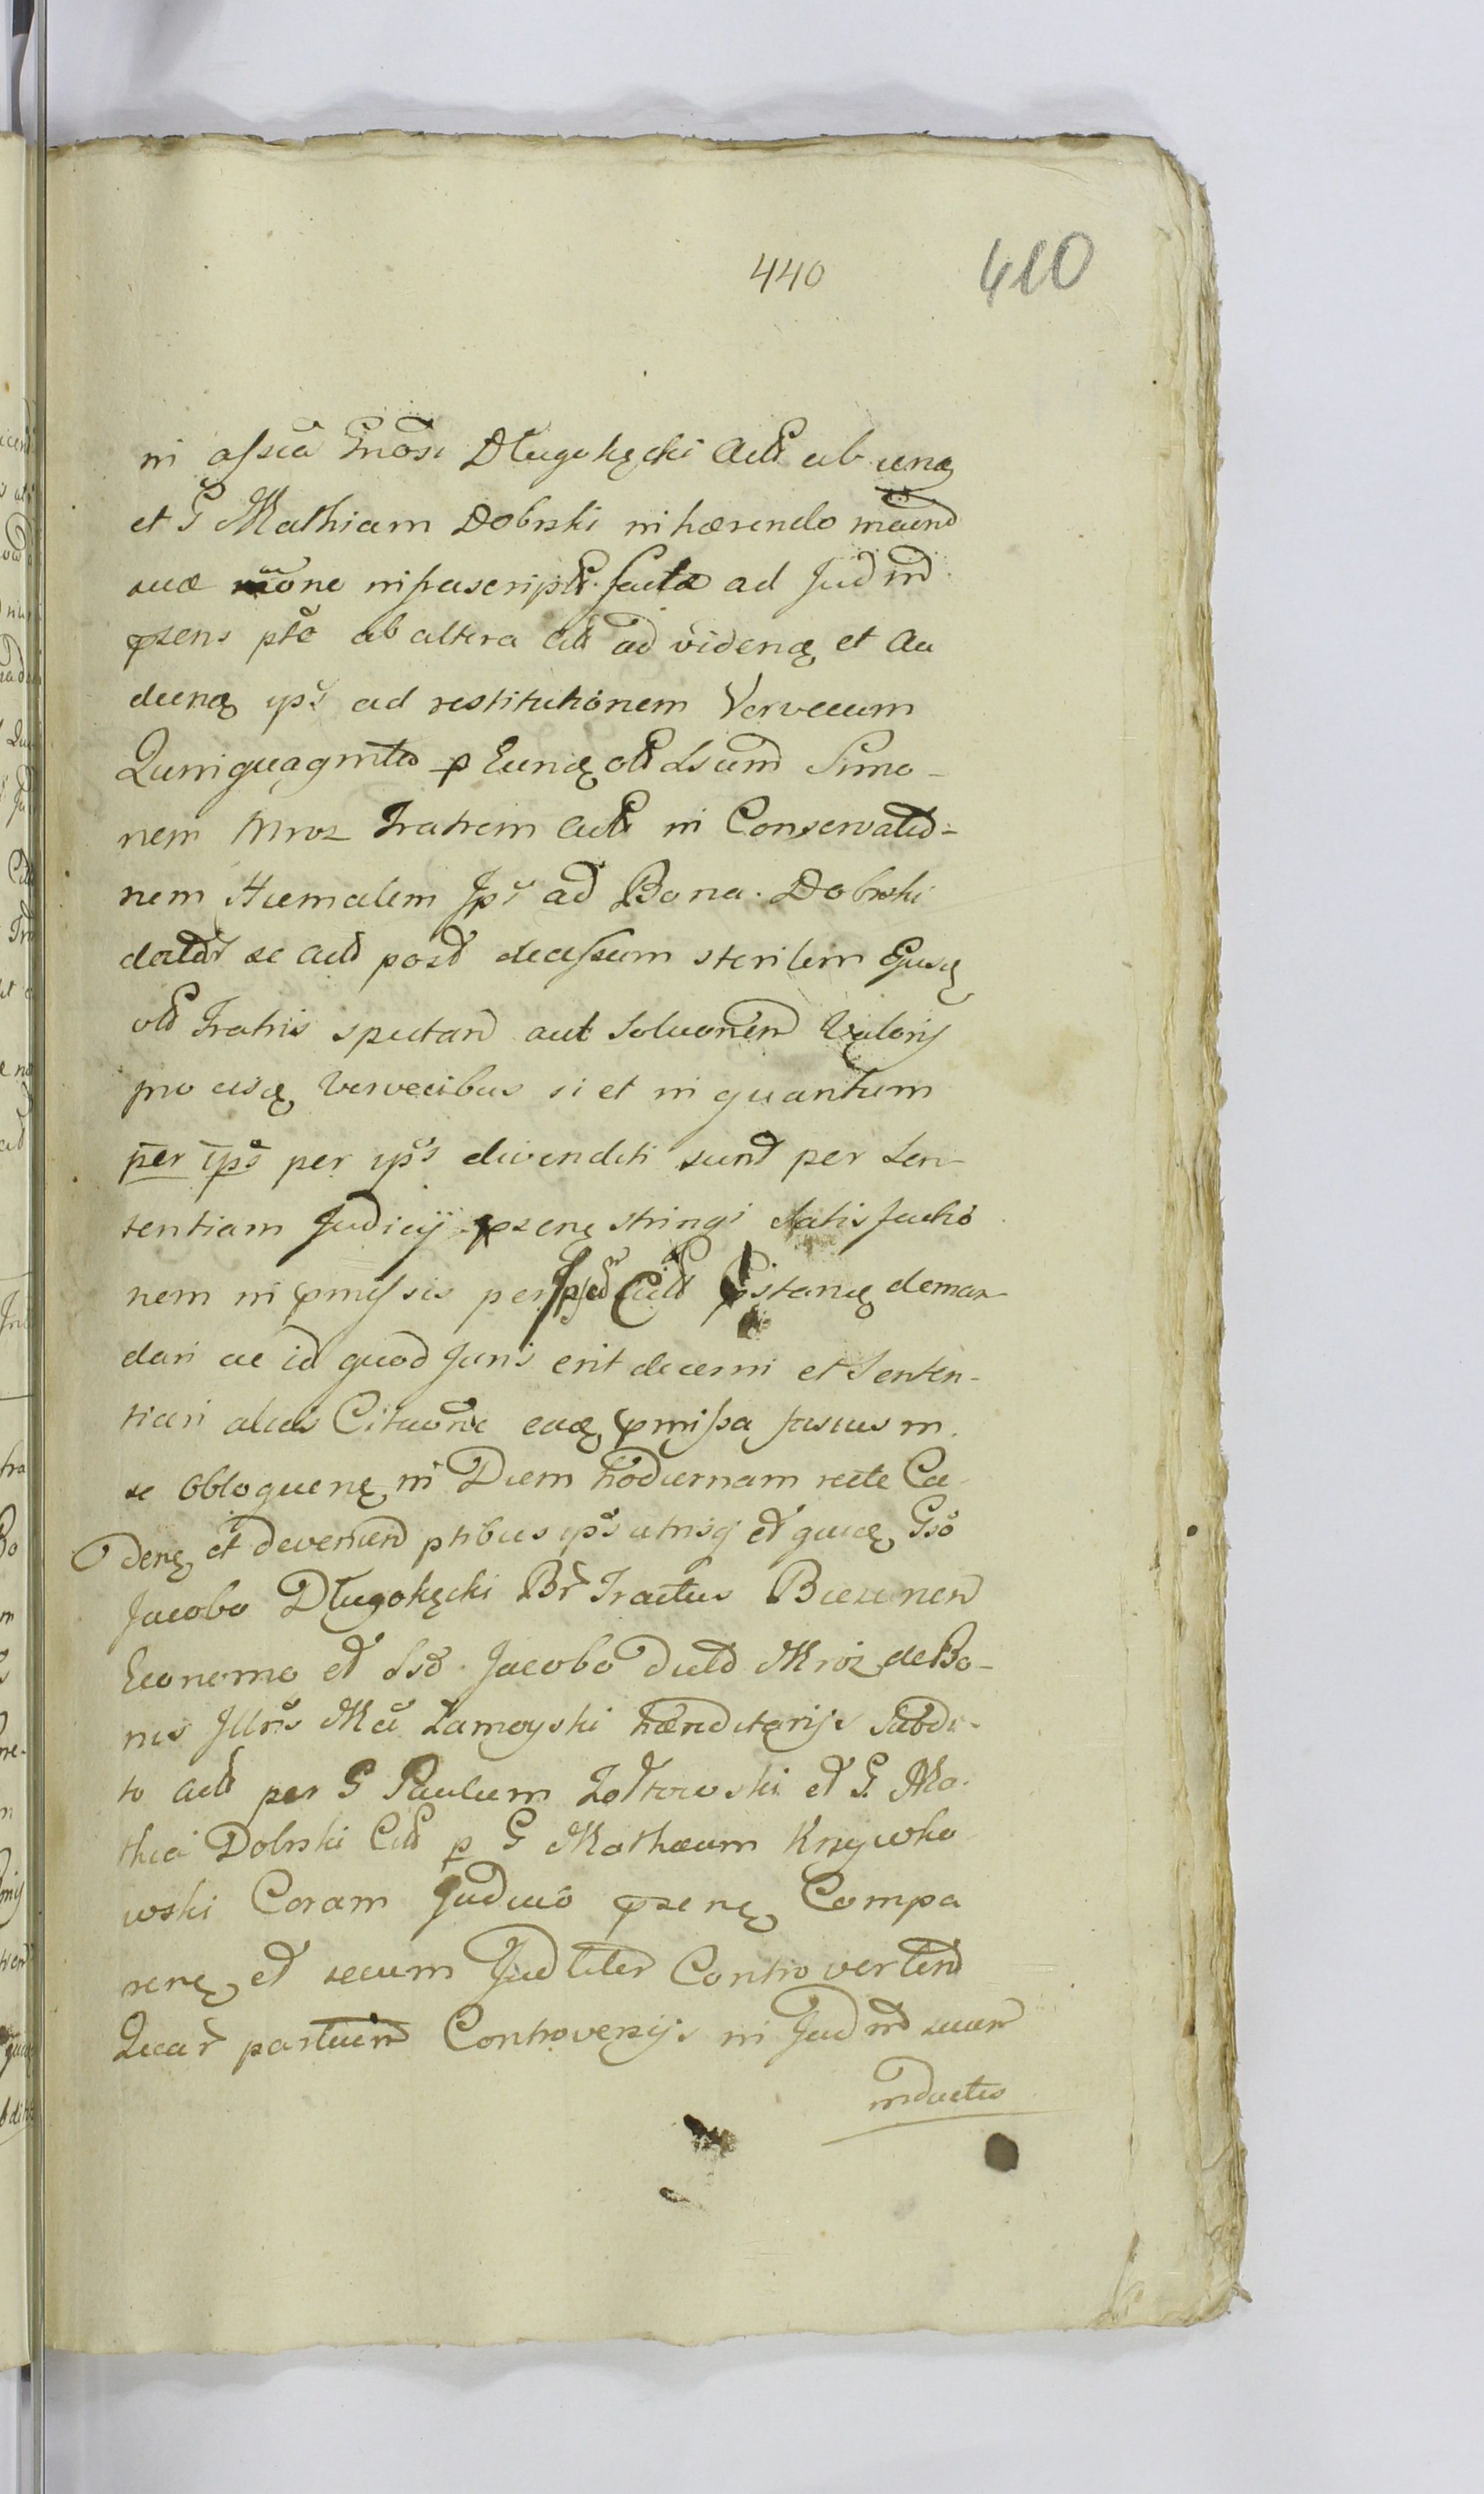 440 410
in assa Gnosi Długokęcki Actt ab una
et G Mathiam Dobrski inhærendo
suæ infrascriptt. factæ ad Jud
ab altera Citt ad videnȩ et Au
dienȩ ips ad restitutionem Vervecum
Quinquaginta p Eundȩ olt Lsum Simo-
nem Mroz Fratrem Actt in Conservatio-
nem Hiemalem Ips ad Bona. Dobrski
ac Actt post decessum sterilem Ejusdȩ
olt Fratris spectan aut Soluonem Valoris
pro eisdȩ vervecibus si et in quantum
per ips per ips divenditi sunt per Sen-
tentiam Judicij pzenȩ stringi Satisfactio
nem in pmissis per demar
dari ac id quod Juris erit decerni et Senten-
tiari alias Citaone eadȩ pmissa fusius in
se Obloquenȩ in Diem hodiernam recte Ca-
denȩ et devenien ptibus ips utrisq et quidȩ Gso
Jacobo Długokęcki Br Tractus Biezunen
Economo et Lso. Jacobo dicto Mroz de Bo-
nis Illris Mci Zamoyski hæreditarijs Subdi-
to Actt per G Paulum Zołtowski et G. Ma-
thia Dobrski Citt p G Mathæum Krzywko
wski Coram Judicio pzenȩ Compa
renȩ et secum Judtiter Controverten
Quar partium Controversijs in Jud suum
inductis